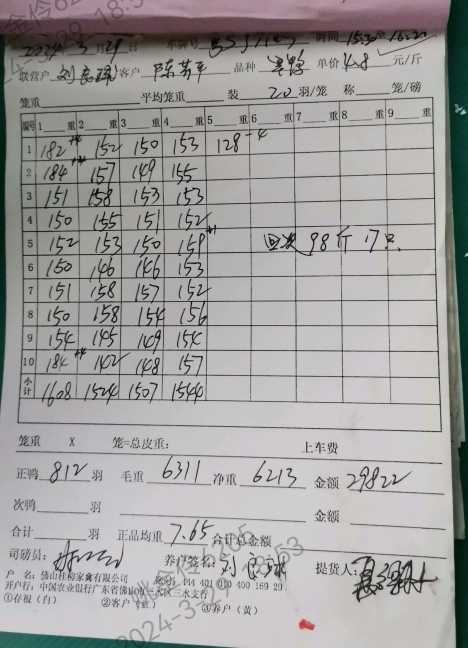 2024年3月29日 时间 15:30 16:20
联营户 客户 陈芳平 品种 单价 4.8 元/斤
笼重 平均笼重 装 20 羽/笼 称 笼/磅
编号 1 重 2 重 3 重 4 重 5 重 6 重 7 重 8 重 9 重
1 182 +4 152 150 153 128 -4
2 184 +4 157 149 155
3 151 158 153 153
4 150 155 151 152
5 152 153 150 159 +1 回次 98斤 17只
6 150 146 146 153
7 151 158 157 152
8 150 158 154 156
9 154 145 149 154
10 184 +4 142 148 157
小计 1608 1524 1507 1544
笼重 X 笼=总皮重: 上车费
正鸭 812 羽 毛重 6311 净重 6213 金额 29822
次鸭 羽 金额
合计 羽 正品均重 7.65 合计总金额
司磅员: 养户签名: 提货人:
户 名: 佛山桂柳家禽有限公司
开户行: 中国农业银行广东省佛山市三水区三水支行 444 401 040 400 169 29
①存根(白) ②客户(红) ③养户(黄)